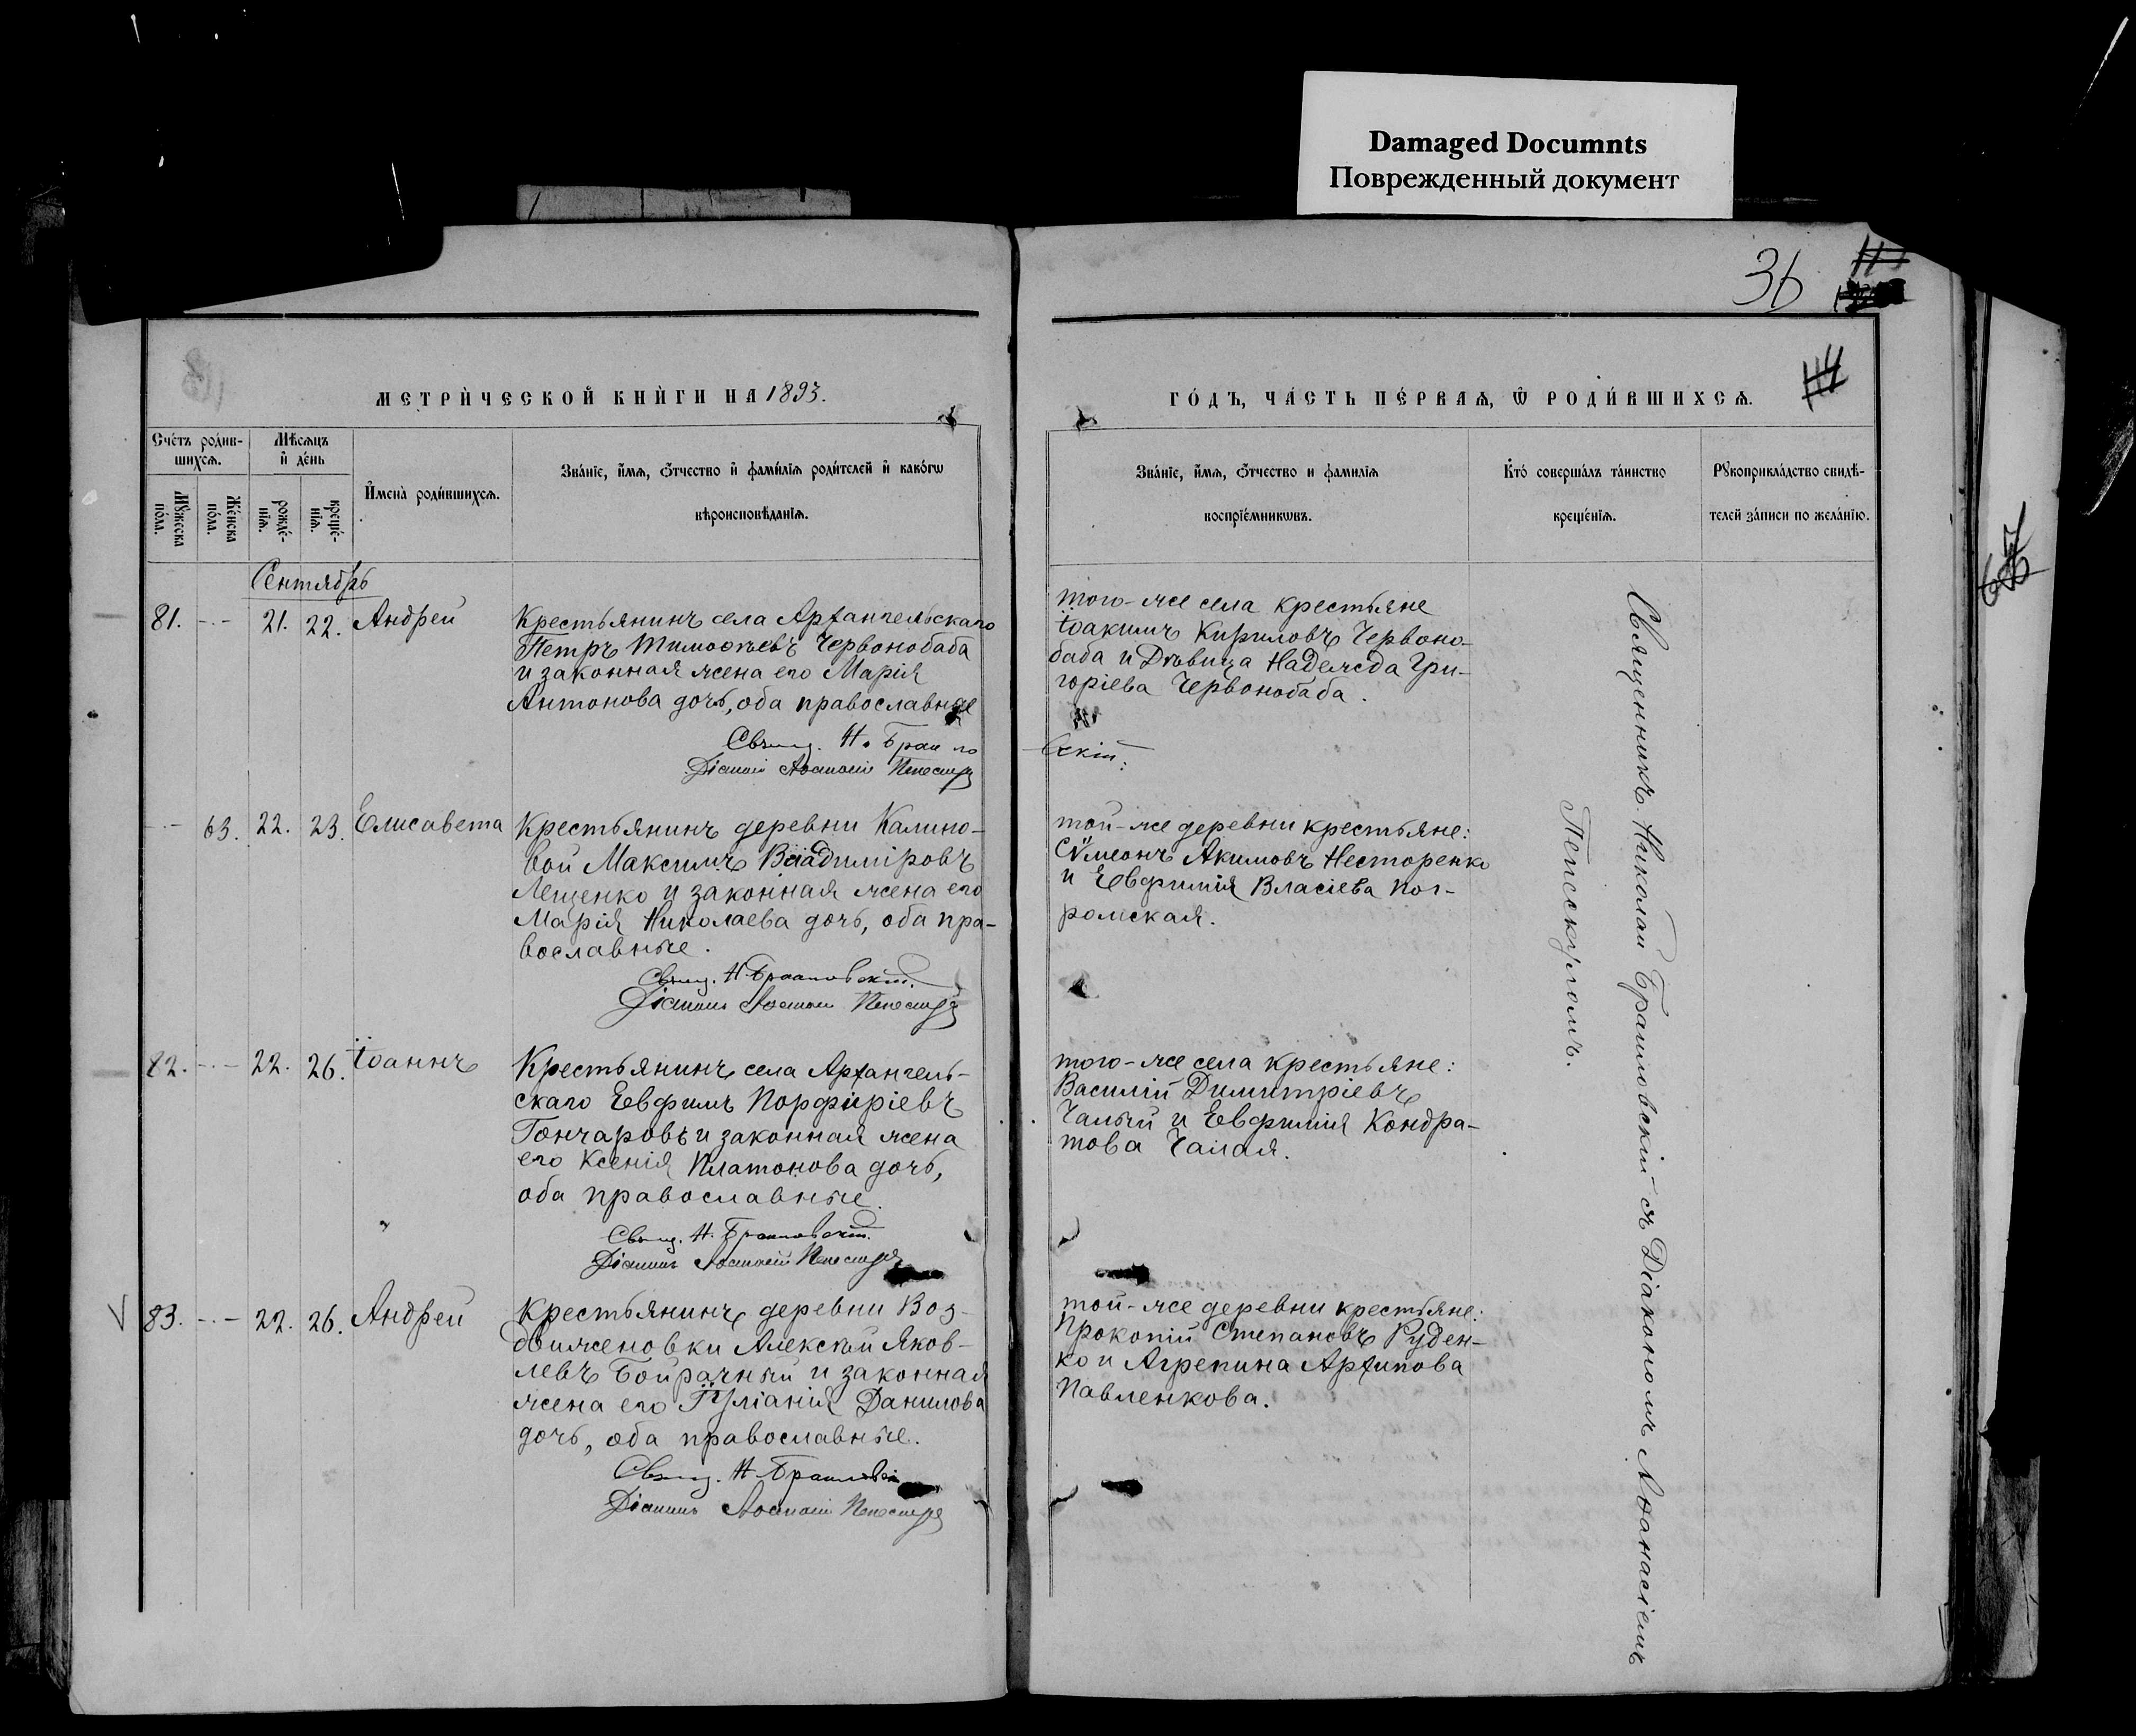 Damaged Documnts
Поврежденный документ
36
МЕТРИЧЕСКОЙ КНИГИ НА 1893.
ГОДЪ, ЧАСТЬ ПЕРВАЯ, Ѿ РОДИВШИХСЯ.
Счетъ родив-
шихся.
Мѣсяцъ
и день
Мужеска
пола.
Женска
пола.
рожде-
нія.
креще-
нія.
Имена родившихся.
Званіе, имя, отчество и фамилія родителей и какогѡ
вѣроисповѣданія.
Званіе, имя, отчество и фамилія
воспріемникѡвъ.
Кто совершалъ таинство
крещенія.
Рукоприкладство свидѣ-
телей записи по желанію.
Сентябрь
81. - - 21. 22. Андрей
Крестьянинъ села Архангельскаго
Петръ Тимоѳѣевъ Червонобаба
и законная жена его Марія
Антонова дочь, оба православные
Свящ. Н. Бра
того-же села крестьяне
Іоакимъ Кириловъ Червоно-
баба и Дѣвица Надежда Гри-
горіева Червонобаба.
скій.
- 63. 22. 23. Елисавета
Крестьянинъ деревни Калино-
вой Максимъ Владиміровъ
Лещенко и законная жена его
Марія Николаева дочь, оба пра-
вославные.
Свящ. Н. Браиловскій.
той-же деревни крестьяне:
Сѵмеонъ Акимовъ Несторенко
и Евфимія Власіева Пог-
ромская.
82. - - 22. 26. Іоаннъ
Крестьянинъ села Архангель-
скаго Евфимъ Порфиріевъ
Гончаровъ и законная жена
его Ксенія Платонова дочь,
оба православные.
Свящ. Н. Браиловскій.
того-же села крестьяне:
Василій Димитріевъ
Чалый и Евфимія Кондра-
това Чалая.
V 83. - - 22. 26. Андрей
Крестьянинъ деревни Воз-
движеновки Алексѣй Яков-
левъ Бойрачный и законная
жена его Іуліанія Данилова
дочь, оба православные.
Свящ. Н. Браиловскі
той-же деревни крестьяне:
Прокопій Степановъ Руден-
ко и Агрепина Архипова
Павленкова.
Священникъ Николай Браиловскій съ Діакономъ Аѳанасіемъ